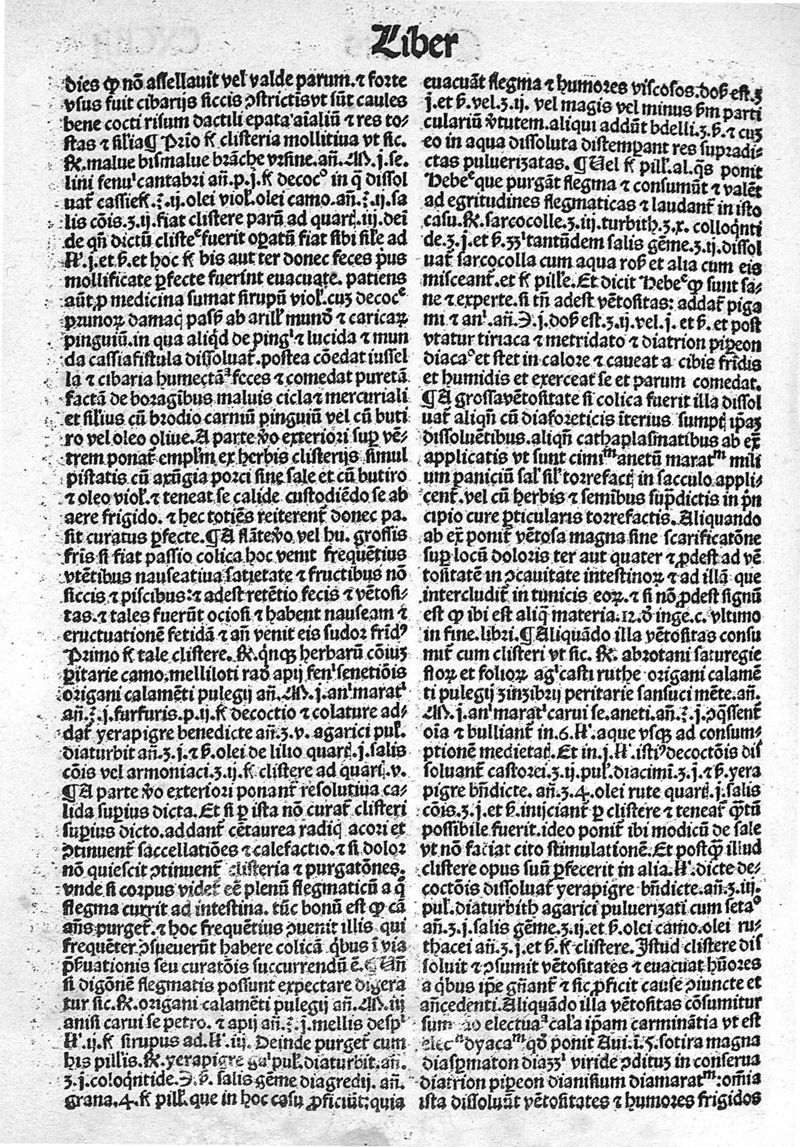 Liber
dies ꝙ nõ assellauit vel valde parum.⁊ forte
vsus fuit cibarijs siccis ↄstrictis vt sũt caules
bene cocti risum dactili epata aĩaliũ ⁊ res to-
stas ⁊ sĩlia¶ Prĩo clisteria mollitiua vt sic.
℞. malue bismalue brãche vrsine.añ.M.j.se.
lini fenu' cantabri añ.p.j. decocº in q̃ dissol
uat̃ cassie .ʒ.ij.olei viol'.olei camo.añ.ʒ.ij.sa
lis cõis.ʒ.ij.fiat clistere parũ ad quart̃.iij.deĩ
de qñ dictũ clistere fuerit opatũ fiat sibi sĩle ad
.j.et ß.et hoc bis aut ter donec feces prius
mollificate ꝑfecte fuerint euacuate. patiens
aũt ꝓ medicina sumat sirupũ viol'.cuȝ decocᵉ
prunoꝝ damaq̃ pass̃ ab arill' mundº ⁊ caricaꝝ
pinguiũ.in qua aliq̃d de ping' ⁊ lucida ⁊ mun
da cassiafistula dissoluat̃.postea cõedat iussel
la ⁊ cibaria humectãᵃ feces ⁊ comedat puretã
factã de boragibus maluis cicla ⁊ mercuriali
et sĩlius cũ brodio carniũ pinguiũ vel cũ buti
ro vel oleo oliue. A parte ꝟo exteriori suꝑ vẽ-
trem ponat̃ emplm̃ ex herbis clisterijs simul
pistatis cũ axũgia porci sine sale et cũ butiro
⁊ oleo viol'.⁊ teneat se calide custodiẽdo se ab
aere frigido.⁊ hec totiẽs reiterent̃ donec pa.
sit curatus ꝑfecte.¶A flãte ꝟo vel hu. grossis
fris si fiat passio colica hoc venit frequẽtius
vtẽtibus nauseatiua satietate ⁊ fructibus nõ
siccis ⁊ piscibus:⁊ adest retẽtio fecis ⁊ vẽtosi-
tas.⁊ tales fuerũt ociosi ⁊ habent nauseam ⁊
eructuationẽ fetidã ⁊ añ venit eis sudor frĩdꝰ
Primo tale clistere.℞.qñqȝ herbarũ cõiuȝ
ꝑitarie camo.melliloti radº apij fen' senetiõis
origani calamẽti pulegij añ.M.j.an' marat'
añ.ʒ.j.furfuris.p.ij. decoctio ⁊ colature ad-
dat̃ yerapigre benedicte añ.ʒ.v.agarici pul'.
diaturbit añ.ʒ.j.⁊ ß.olei de lilio quart̃.j.salis
cõis vel armoniaci.ʒ.ij. clistere ad quart̃.v.
¶A parte ꝟo exteriori ponant̃ resolutiua ca-
lida suꝑius dicta. Et si ꝑ ista nõ curat̃ clisteri
suꝑius dicto.addant̃ cẽtaurea radiq̃ acori et
ↄtinuent̃ saccellatiões ⁊ calefactio.⁊ si dolor
nõ quiescit ↄtinuent̃ clisteria ⁊ purgatões.
vnde si corpus videt̃ eẽ plenũ flegmaticũ a q̊
flegma currit ad intestina. tũc bonũ est ꝙ cã
añs purget̃.⁊ hoc frequẽtius ↄuenit illis qui
frequẽter ↄsueuerũt habere colicã q̃bus ĩ via
p̃seruationis seu curatõis succurrendũ ẽ.¶Vñ
si digõnẽ flegmatis possunt expectare digera
tur sic.℞.origani calamẽti pulegij añ.M.iij
anisi carui se petro.⁊ apij añ.ʒ.j.mellis desp'
.ij. sirupus ad..iij. Deinde purget̃ cum
his pillis.℞.yerapigre ga' pul'.diaturbit.añ.
ʒ.j.coloq̃ntide.℈.ß. salis gẽme diagredij.añ.
grana.4. pill'.que in hoc casu ꝓficiũt:quia
euacuãt flegma ⁊ humores viscosos.dos' est.ʒ
j.et ß.vel.ʒ.ij. vel magis vel minus ßm parti
culariũ ꝟtutem.aliqui addũt bdelli.ʒ.ß.⁊ cuȝ
eo in aqua dissoluta distempant res supradi-
ctas puluerizatas.¶Uel pill'.al.q̃s ponit
Hebeᵉ que purgãt flegma ⁊ consumũt ⁊ valẽt
ad egritudines flegmaticas ⁊ laudant̃ in isto
casu.℞.sarcocolle.ʒ.iij.turbith.ʒ.x. colloq̃nti
de.ʒ.j.et ß.ʒʒ' tantũdem salis gẽme.ʒ.ij.dissol
uat̃ sarcocolla cum aqua ros̃ et alia cum eis
misceant̃.et pill'e. Et dicit Hebeᵉ ꝙ sunt sa-
ne ⁊ experte.si tñ adest vẽtositas: addat̃ piga
mi ⁊ an'.añ.℈.j.dos' est.ʒ.ij.vel.j. et ß.et post
vtatur tiriaca ⁊ metridato ⁊ diatrion pipeon
diacaº et stet in calore ⁊ caueat a cibis frĩdis
et humidis et exerceat se et parum comedat.
¶A grossa vẽtositate si colica fuerit illa dissol
uat̃ aliqñ cũ diaforeticis ĩterius sumpt̃ ip̃aȝ
dissoluẽtibus.aliqñ cathaplasmatibus ab ex̃
applicatis vt sunt cimiᵐ anetũ maratᵐ mili
um paniciũ sal' sĩl' torrefact̃ in sacculo appli-
cent̃.vel cũ herbis ⁊ semĩbus sup̃dictis in p̃n
cipio cure ꝑticularis torrefactis. Aliquando
ab ex̃ ponit̃ vẽtosa magna sine scarificatõne
suꝑ locũ doloris ter aut quater ⁊ ꝓdest ad vẽ
tositatẽ in ↄcauitate intestinoꝝ ⁊ ad illã que
intercludit̃ in tunicis eoꝝ.⁊ si nõ ꝓdest signũ
est ꝙ ibi est aliq̃ materia.12.ð inge.c. vltimo
in fine.libri.¶Aliquãdo illa vẽtositas consu
mit̃ cum clisteri vt sic.℞. abrotani saturegie
floꝝ et folioꝝ ag'casti ruthe origani calamẽ
ti pulegij zinzibrij peritarie sansuci mẽte.añ.
M.j.an' marat' carui se.aneti.añ.ʒ.j.ↄq̃ssent̃
oĩa ⁊ bulliant̃ in.6..aque vsqȝ ad consum-
ptionẽ medietat̃. Et in.j..isti' decoctõis dis
soluant̃ castorei.ʒ.ij.pul'.diacimi.ʒ.j.⁊ ß.yera
pigre bñdicte. añ.ʒ.4.olei rute quart̃.j.salis
cõis.ʒ.j.et ß.inijciant̃ ꝑ clistere ⁊ teneat̃ q̃tũ
possibile fuerit.ideo ponit̃ ibi modicũ de sale
vt nõ faciat cito stimulationẽ. Et postq̃ illud
clistere opus suũ ꝑfecerit in alia..dicte de-
coctõis dissoluat̃ yerapigre bñdicte.añ.ʒ.iij.
pul'.diaturbith agarici puluerizati cum setaº
añ.ʒ.j.salis gẽme.ʒ.ij.et ß.olei camo.olei ru-
thacei añ.ʒ.j.et ß. clistere. Istud clistere dis
soluit ⁊ ↄsumit vẽtositates ⁊ euacuat hũores
a q̃bus ip̃e gñant̃ ⁊ sic ꝓficit cause ↄiuncte et
añcedenti. Aliquãdo illa vẽtositas cõsumitur
electuaᵃ cal'a ip̃am carminãtia vt est
qð ponit Aui.ĩ.5.sotira magna
diaspmaton diaʒʒ' viride ↄdituȝ in conserua
diatrion pipeon dianisium diamaratᵐ:om̃ia
ista dissoluũt vẽtositates ⁊ humores frigidos